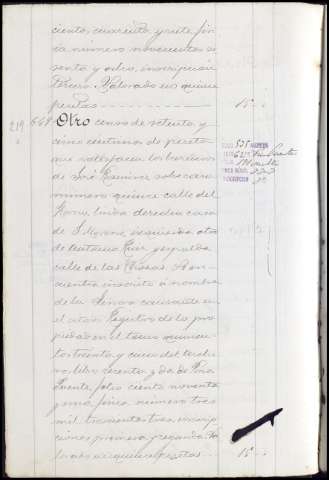 ciento cuarenta y siete, fin
ca número novecientos se
senta y ocho, inscripción
tercera. Valorado en quince
pesetas 15
219 648 Otro censo de setenta y
cinco céntimos de peseta
que satisfacen los herederos
de José Ramírez sobre casa
número quince calle del
Horno, linda derecha casa
de izquierda otra
de y espalda
calle de las Se en
cuentra inscrito a nombre
de la Señora causante en
el citado Registro de la pro
piedad en el tomo quinien
tos treinta y cinco del
libro sesenta y dos de
Puente, folio ciento noventa
y uno, finca número tres
mil trescientos tres, inscrip
ciones primera y segunda. Va
lorado en quince pesetas 15
535
62